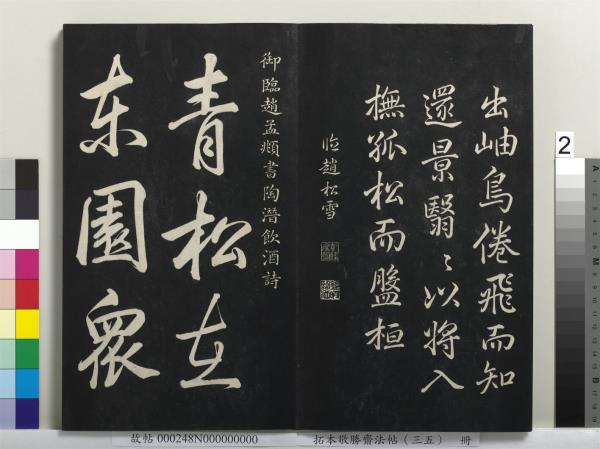 出岫鳥倦飛而知
還景翳〻以將入
撫孤松而盤桓
臨趙松雪
御臨趙孟頫書陶潛飲酒詩
青松在
东園眾
2
故帖 000248N000000000
拓本敬勝齋法帖(三五) 冊